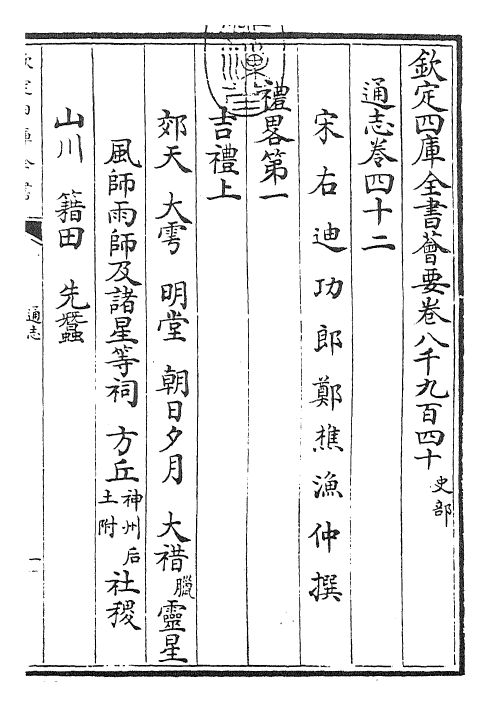 欽定四庫全書薈要卷八千九百四十 史部
通志卷四十二
宋右迪功郎鄭樵漁仲撰
禮畧第一
吉禮上
郊天 大雩 明堂 朝日夕月 大䄍臘 靈星
風師雨師及諸星等祠 方丘神州后土附 社稷
山川 籍田 先蠶
欽定四庫全書
通志
一